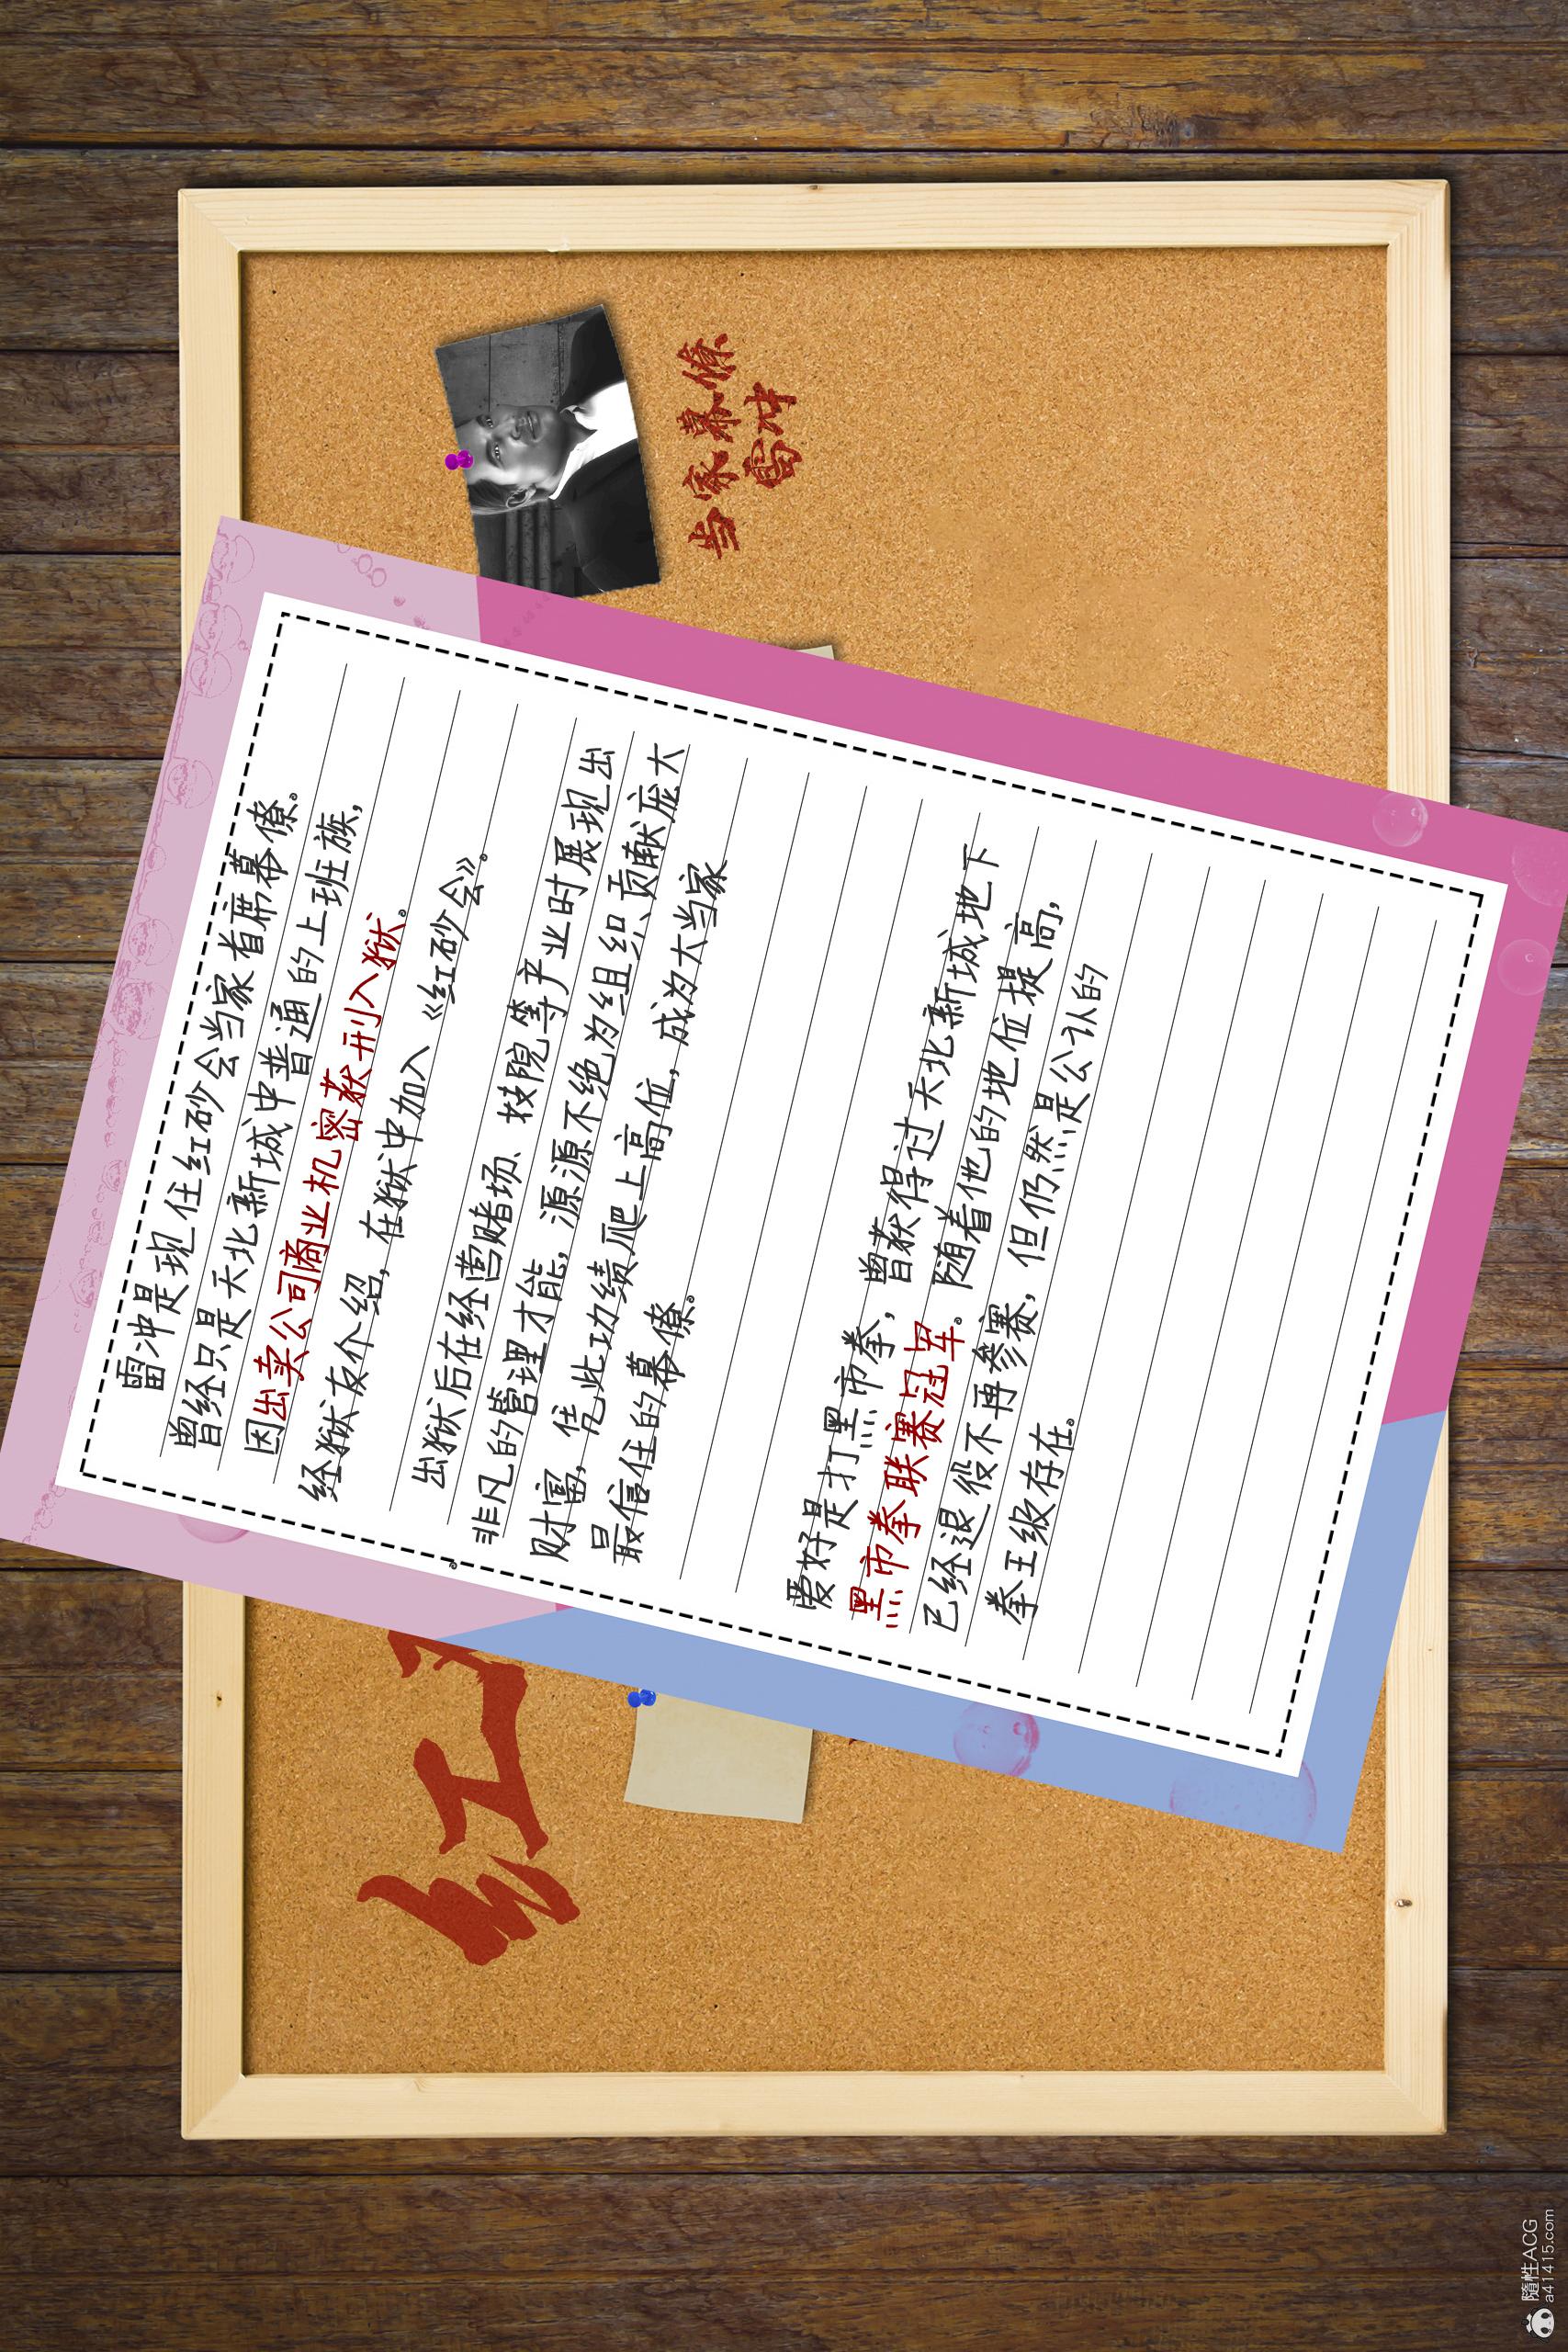 红
当家幕僚
雷冲
雷冲是现任红砂会当家首席幕僚。
曾经只是天北新城中普通的上班族，
因出卖公司商业机密获刑入狱。
经狱友介绍，在狱中加入《红砂会》。
出狱后在经营赌场、技院等产业时展现出
非凡的管理才能，源源不绝为组织贡献庞大
财富，凭此功绩爬上高位，成为大当家
最信任的幕僚。
爱好是打黑市拳，曾获得过天北新城地下
黑市拳联赛冠军。随着他的地位提高，
已经退役不再参赛，但仍然是公认的
拳王级存在。
隨性ACG
a41415.com